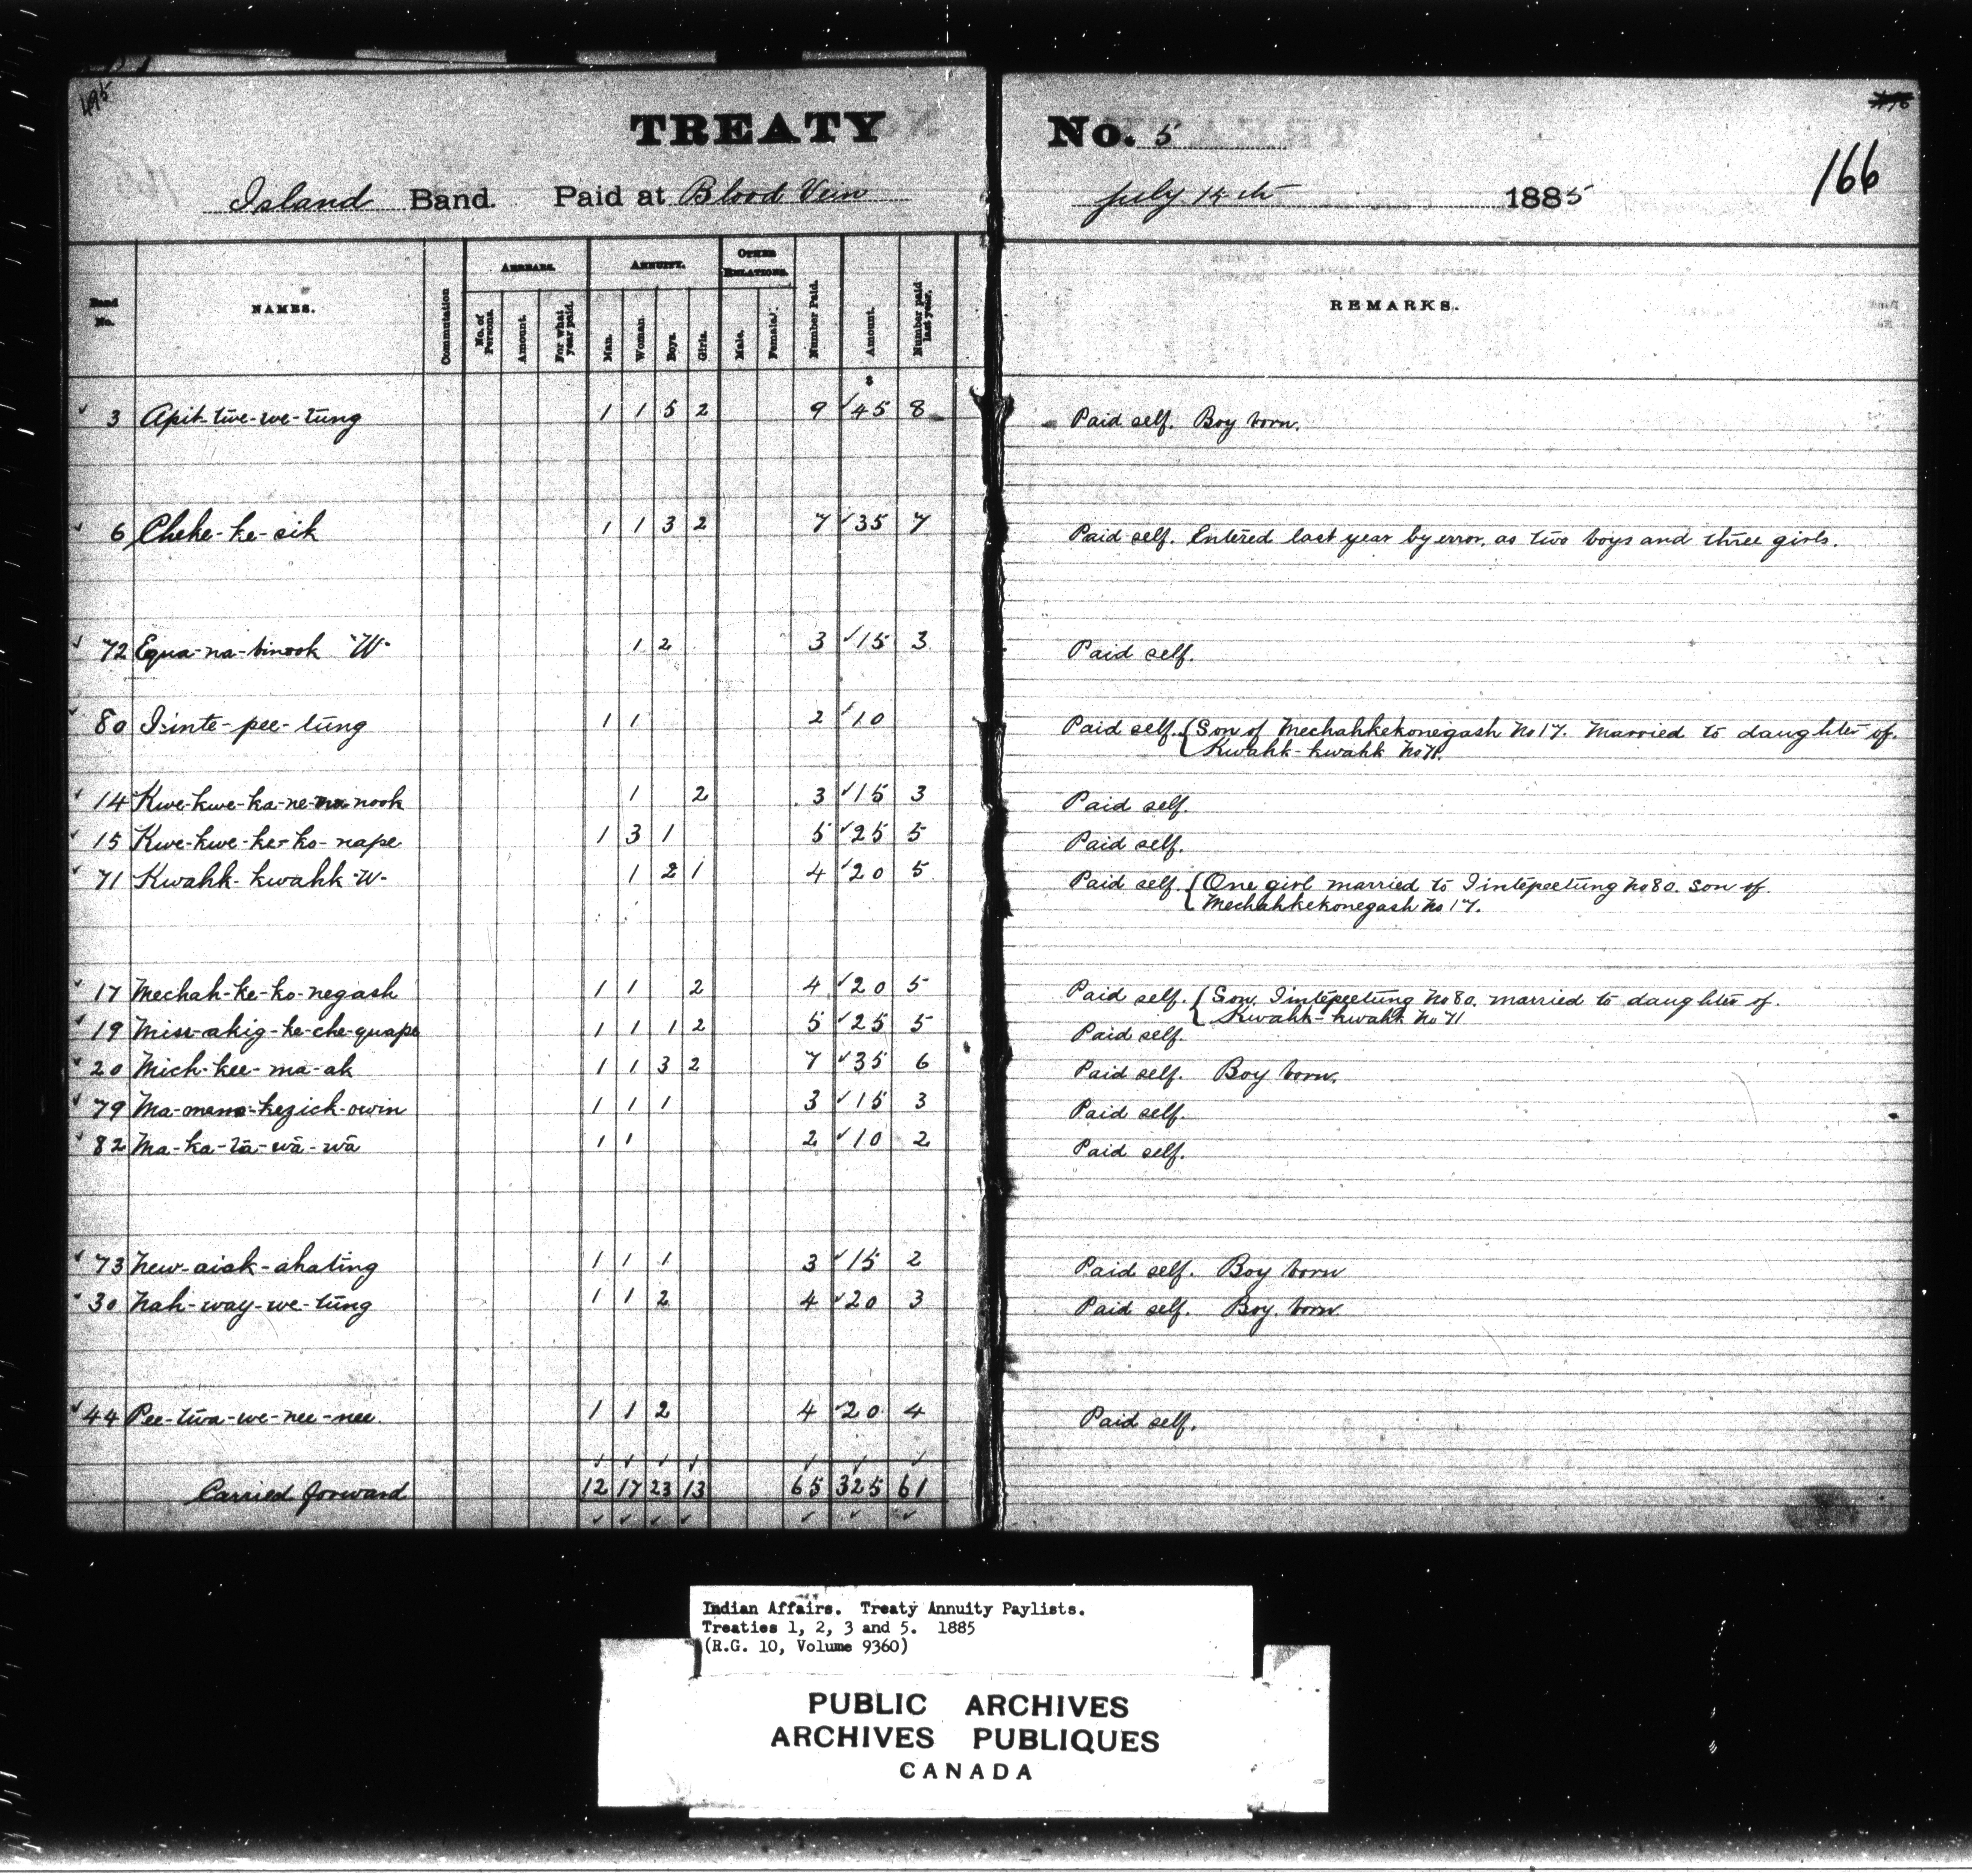 495
TREATY No. 5
166
Island Band. Paid at Blood Vein July 14th 1885
Band No. NAMES. Commutation ARREARS. No. of Persons. Amount. For what year paid. ANNUITY. Man. Woman. Boys. Girls. OTHER RELATIONS. Male. Female. Number Paid. Amount. Number paid last year. REMARKS.
$
3 Apit-twe-we-tung 1 1 5 2 9 45 8 Paid self. Boy born.
6 Cheke-ke-sik 1 1 3 2 7 35 7 Paid self. Entered last year by error, as two boys and three girls.
72 Equa-na-binook "W" 1 2 3 15 3 Paid self.
80 I-inte-pee-tung 1 1 2 10 Paid self. { Son of Mechahkekonegash No 17. Married to daughter of.
Kwahk-kwahk No 71.
14 Kwe-kwe-ka-ne-nook 1 2 3 15 3 Paid self.
15 Kwe-kwe-ke-ko-nape 1 3 1 5 25 5 Paid self.
71 Kwahk-kwahk "W" 1 2 1 4 20 5 Paid self. { One girl married to Iintepeetung No 80. son of.
Mechahkekonegash No 17.
17 Mechah-ke-ko-negash 1 1 2 4 20 5 Paid self. { Son, Iintepeetung No 80. married to daughter of.
Kwahk-kwahk No 71
19 Miss-akig-ke-che-quape 1 1 1 2 5 25 5 Paid self.
20 Mich-kee-ma-ak 1 1 3 2 7 35 6 Paid self. Boy born.
79 Ma-mene-kezick-owin 1 1 1 3 15 3 Paid self.
82 Ma-ka-tā-wā-wā 1 1 2 10 2 Paid self.
73 New-aisk-ahating 1 1 1 3 15 2 Paid self. Boy born
30 Nah-way-we-tung 1 1 2 4 20 3 Paid self. Boy born
44 Pee-twa-we-nee-nee. 1 1 2 4 20 4 Paid self.
Carried forward 12 17 23 13 65 325 61
Indian Affairs. Treaty Annuity Paylists.
Treaties 1, 2, 3 and 5. 1885
(R.G. 10, Volume 9360)
PUBLIC ARCHIVES
ARCHIVES PUBLIQUES
CANADA